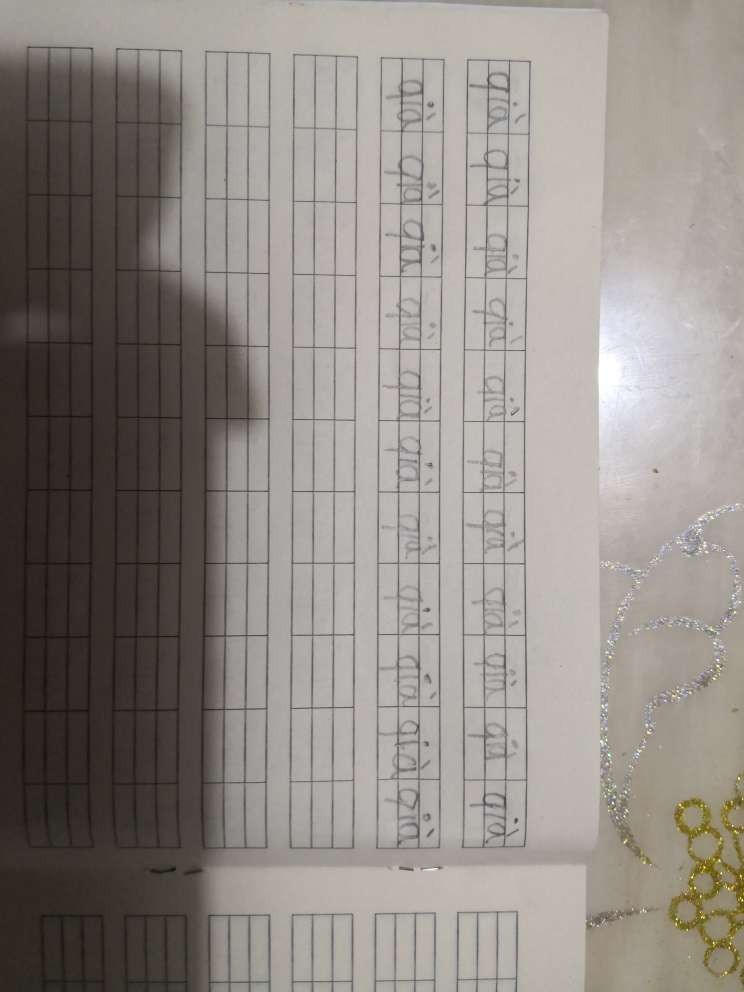 qià qià qià qià qià qià qià qià qià qià qià
qià qià qià qià qià qià qià qià qià qià qià